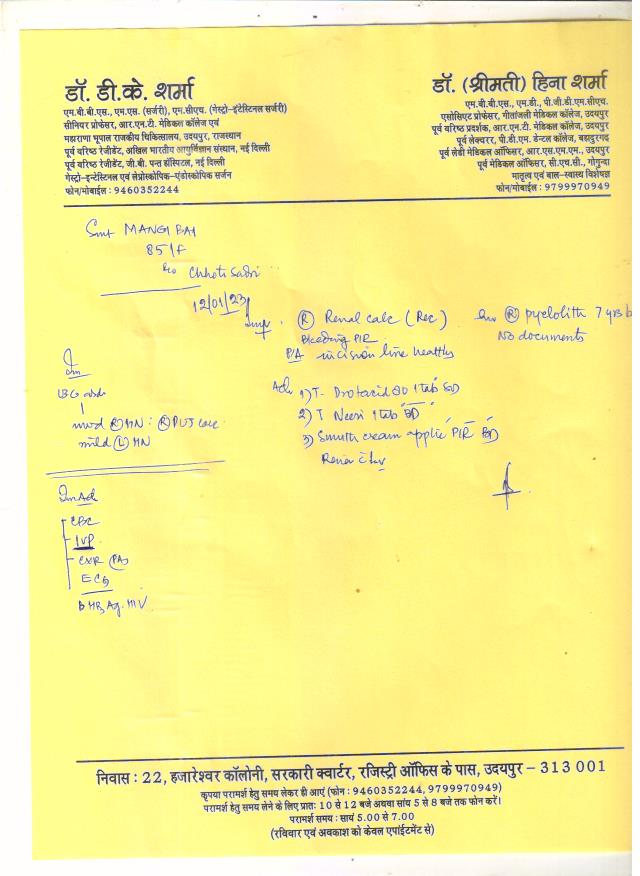 डॉ. डी.के. शर्मा
एम.बी.बी.एस., एम.एस. (सर्जरी), एम.सीएच. (गेस्ट्रो-इंटेस्टिनल सर्जरी)
सीनियर प्रोफेसर, आर.एन.टी. मेडिकल कॉलेज एवं
महाराणा भूपाल राजकीय चिकित्सालय, उदयपुर, राजस्थान
पूर्व वरिष्ठ रेजीडेंट, अखिल भारतीय आयुर्विज्ञान संस्थान, नई दिल्ली
पूर्व वरिष्ठ रेजीडेंट, जी.बी. पन्त हॉस्पिटल, नई दिल्ली
गेस्ट्रो-इन्टेस्टिनल एवं लेप्रोस्कोपिक-एंडोस्कोपिक सर्जन
फोन/मोबाईल : 9460352244
डॉ. (श्रीमती) हिना शर्मा
एम.बी.बी.एस., एम.डी., पी.जी.डी.एम.सीएच.
एसोसिएट प्रोफेसर, गीतांजली मेडिकल कॉलेज, उदयपुर
पूर्व वरिष्ठ प्रदर्शक, आर.एन.टी. मेडिकल कॉलेज, उदयपुर
पूर्व लेक्चरर, पी.डी.एम. डेन्टल कॉलेज, बहादुरगढ़
पूर्व लेडी मेडिकल ऑफिसर, आर.एस.एम.एम., उदयपुर
पूर्व मेडिकल ऑफिसर, सी.एच.सी., गोगुन्दा
मातृत्व एवं बाल-स्वास्थ्य विशेषज्ञ
फोन/मोबाईल : 9799970949
Smt MANGI BAI
85/F
R/o Chhoti Sadri
12/01/23
Imp. (R) Renal calc (Rec)
(R) pyelolith 7 yrs b
Bleeding P/R
No documents
P/A incision line healthy
USG abd
mod (R) HN : (R) PUJ calc
mild (L) HN
Adv 1) T- 1 tab
2) T Neeri 1 tab BD
3) Smuth cream applic P/R BD
Inv Adv
CBC
IVP
CXR (PA)
ECG
HBsAg. HIV
निवास : 22, हजारेश्वर कॉलोनी, सरकारी क्वार्टर, रजिस्ट्री ऑफिस के पास, उदयपुर - 313 001
कृपया परामर्श हेतु समय लेकर ही आएं (फोन : 9460352244, 9799970949)
परामर्श हेतु समय लेने के लिए प्रातः 10 से 12 बजे अथवा सांय 5 से 8 बजे तक फोन करें।
परामर्श समय : सायं 5.00 से 7.00
(रविवार एवं अवकाश को केवल एपाईंटमेंट से)